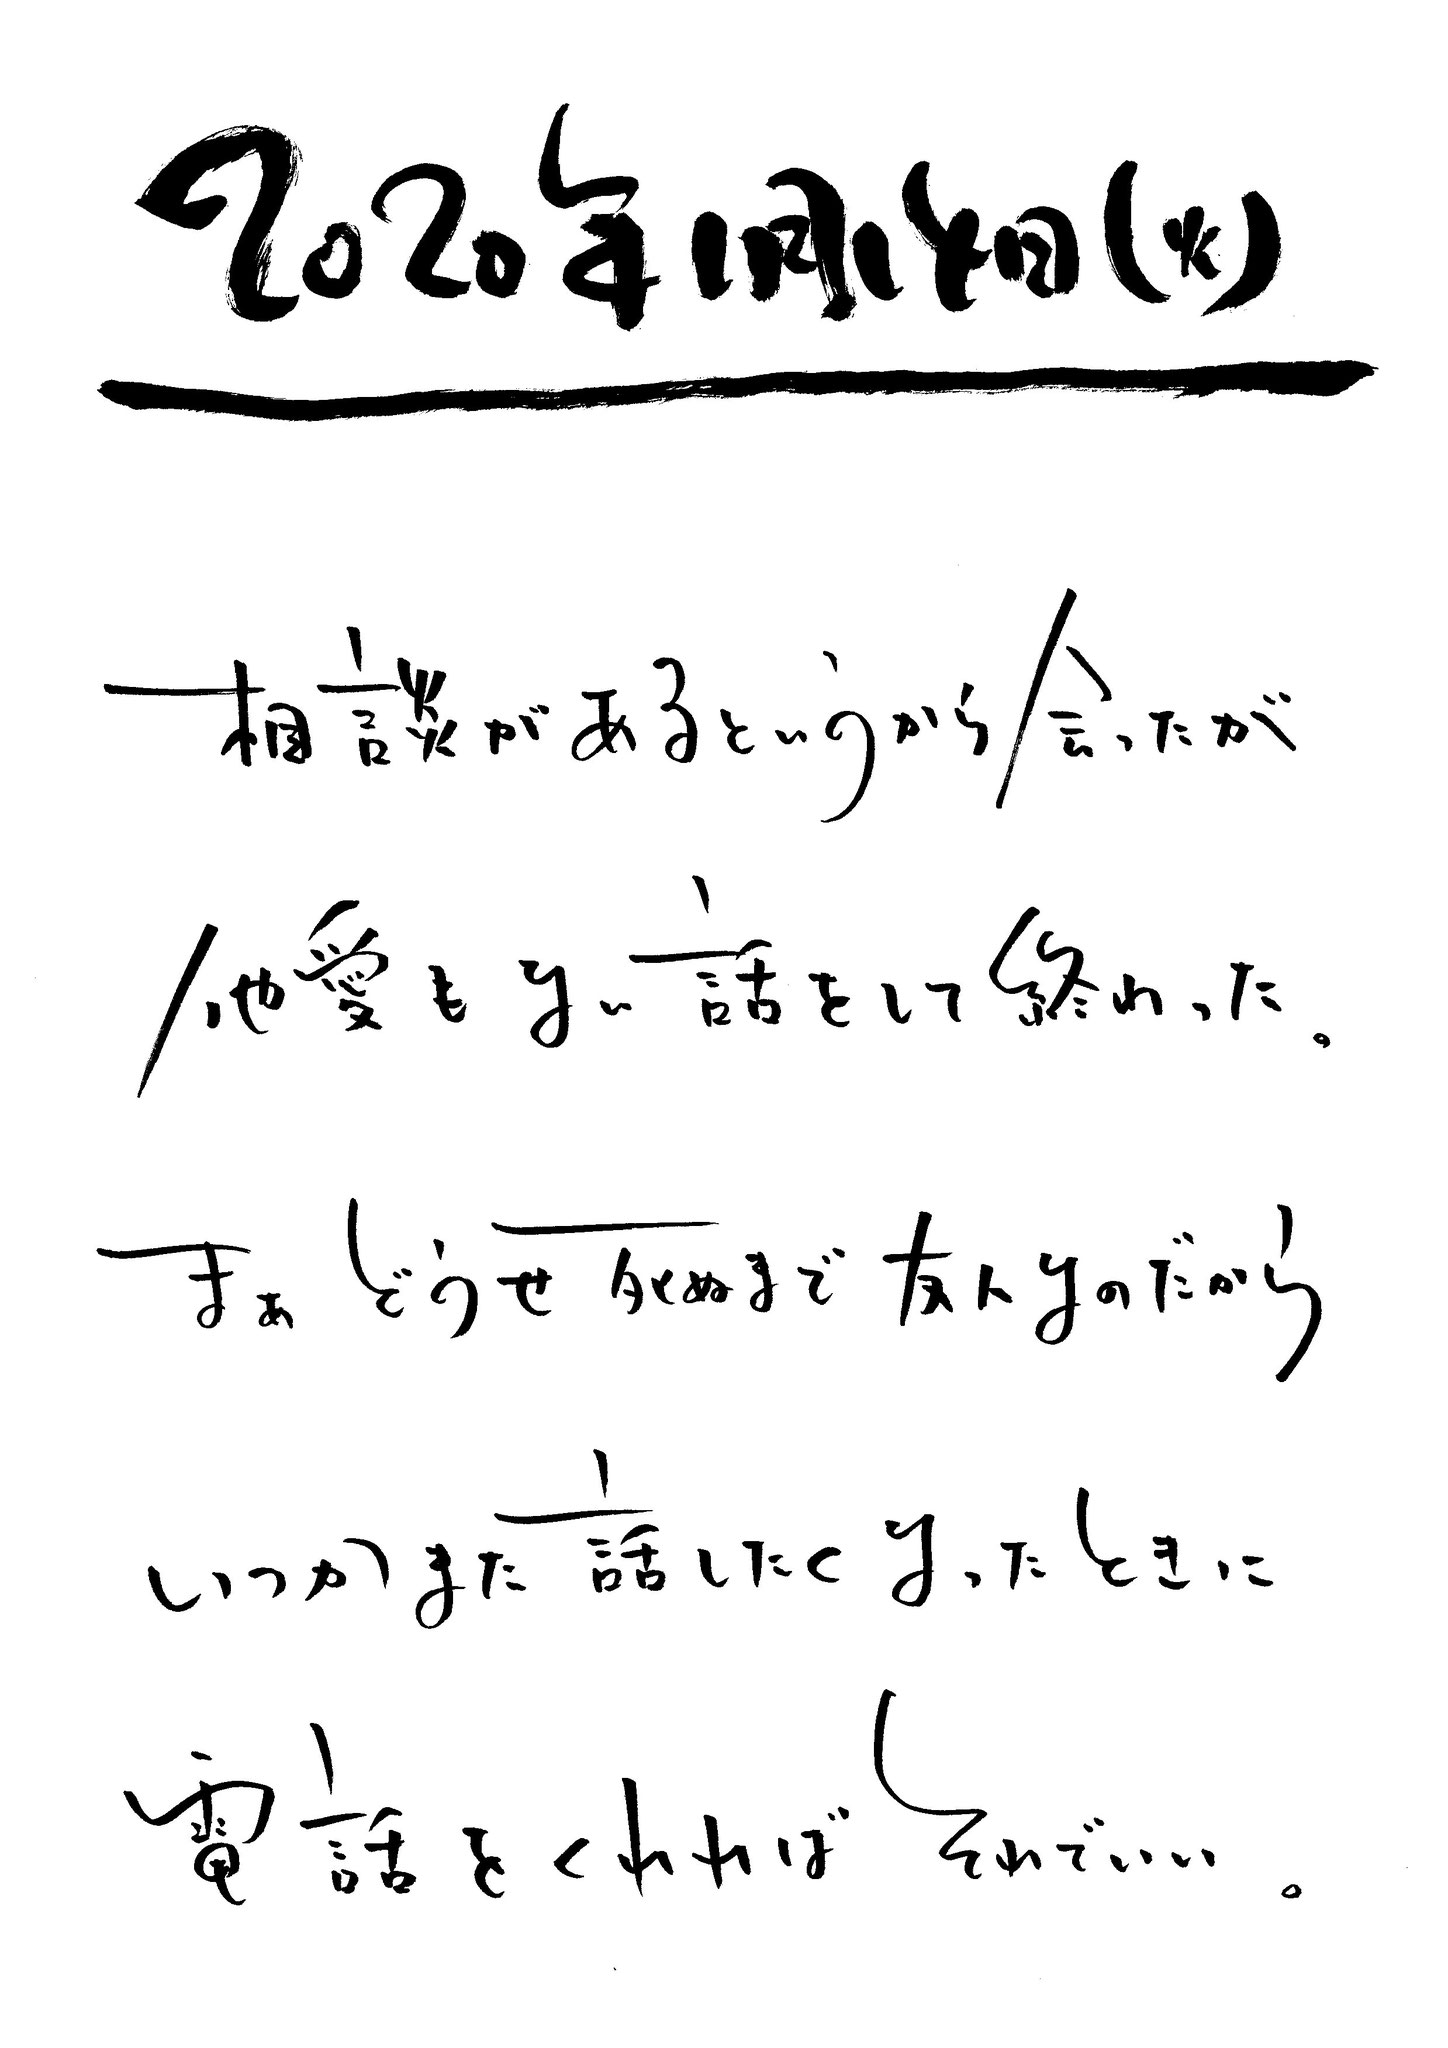 2020年1月14日(火)
相談があるというから会ったが
他愛もない話をして終わった。
まぁどうせ死ぬまで友人なのだから
いつかまた話したくなったときに
電話をくれればそれでいい。